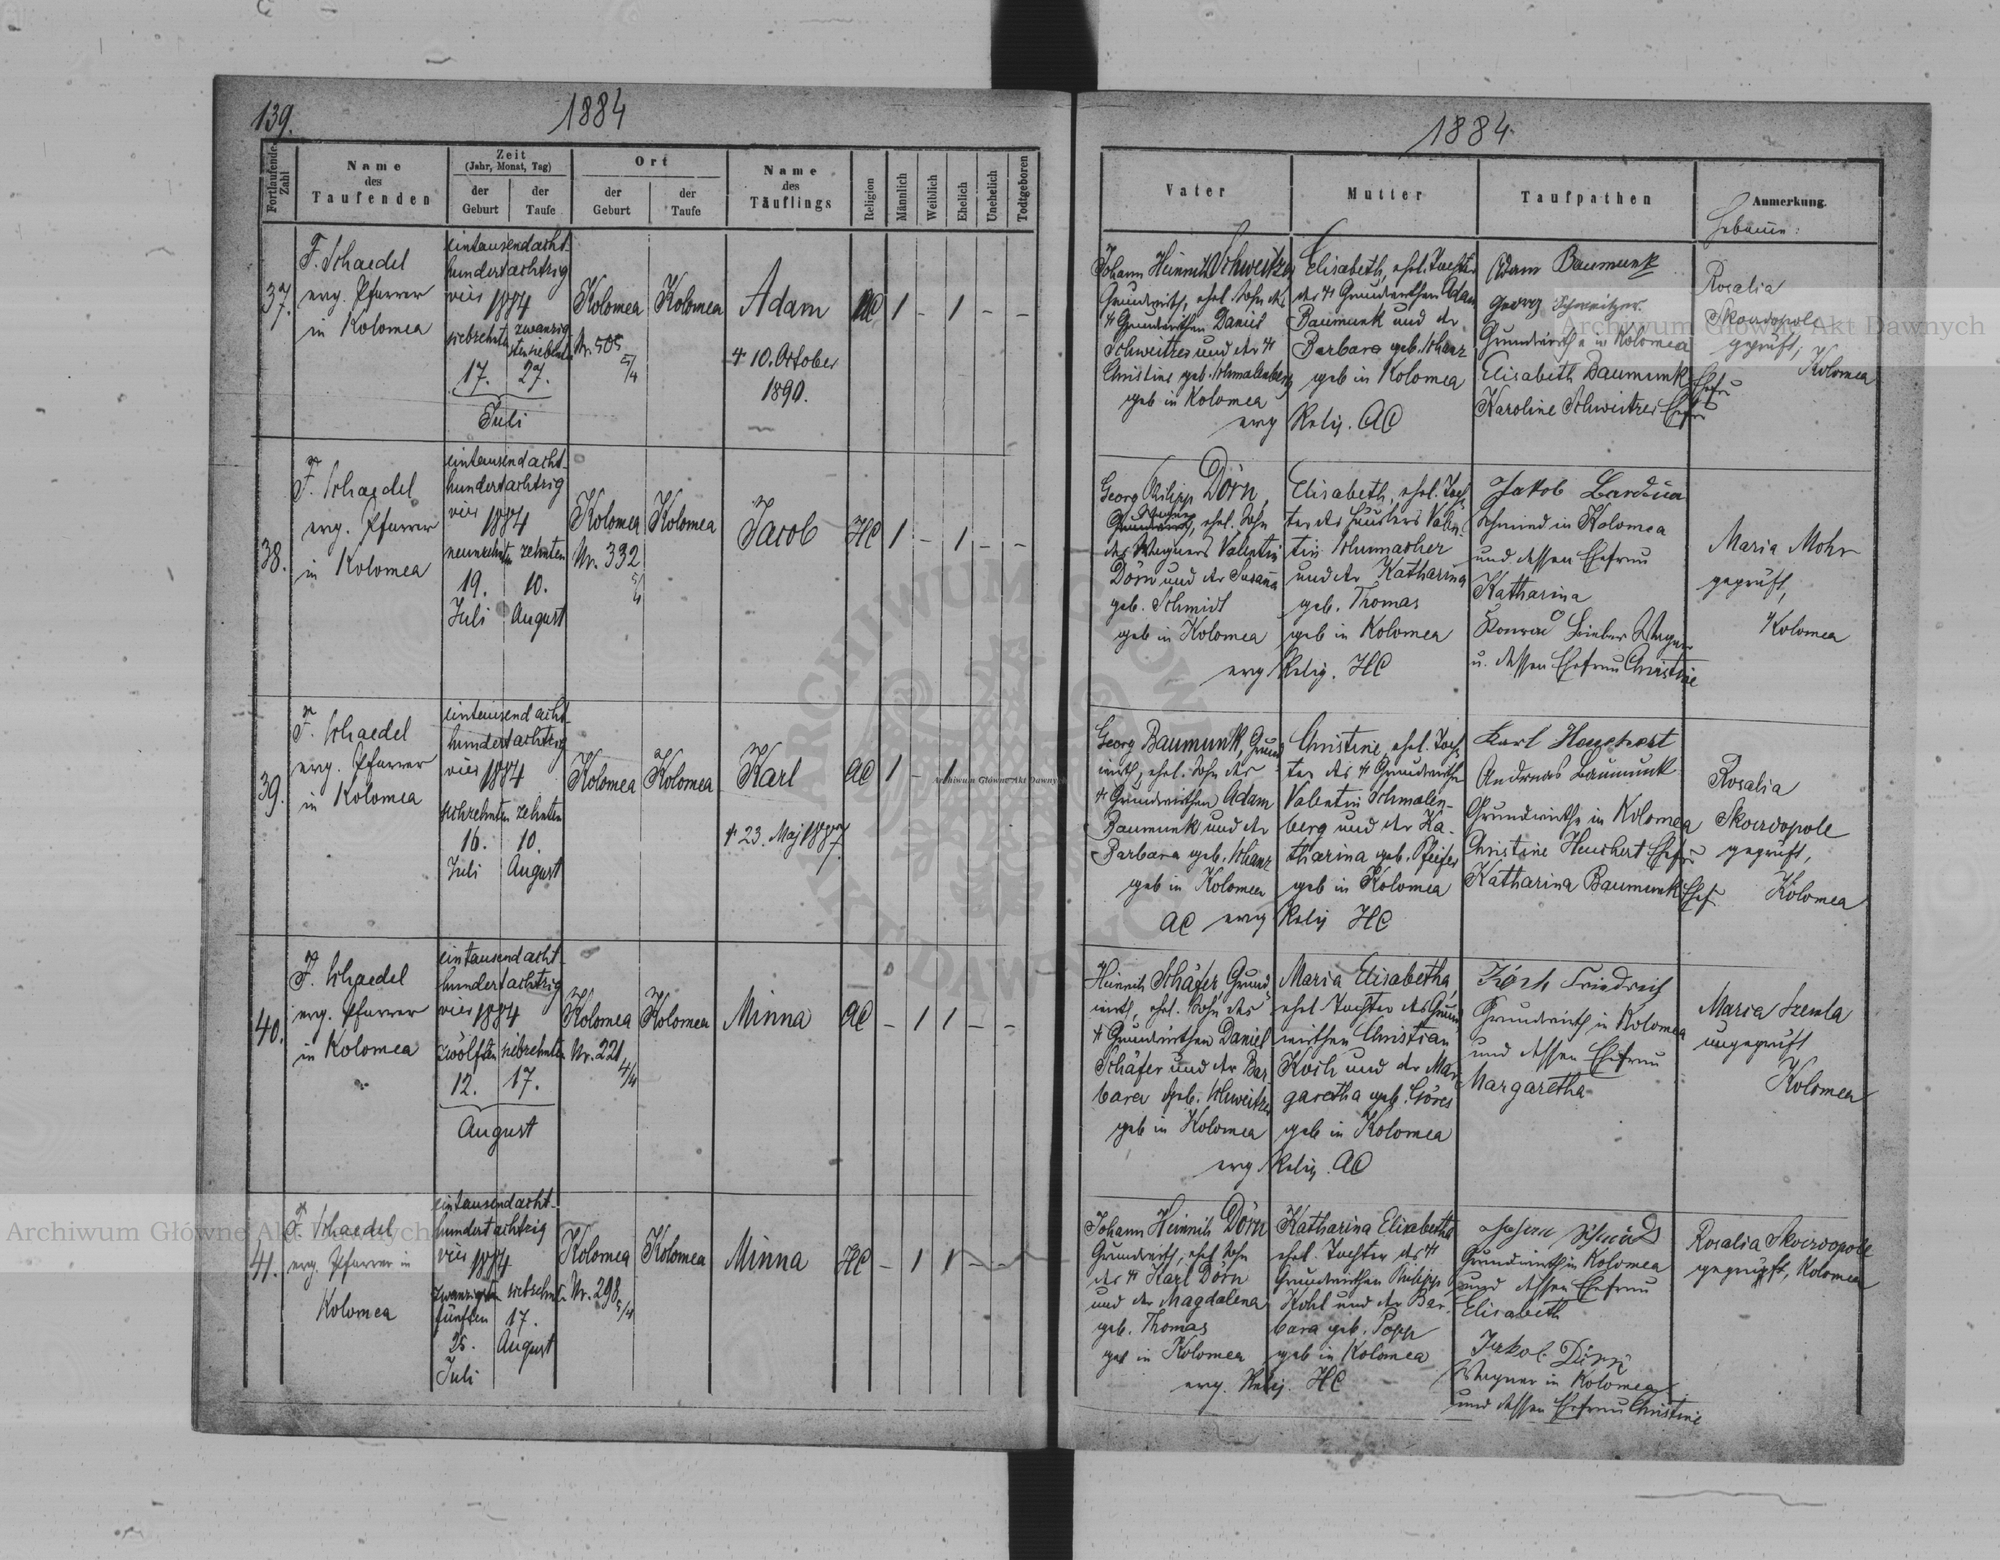 139.
1884
Fortlaufende Zahl
Name
des
Taufenden
Zeit
(Jahr, Monat, Tag)
der
Geburt
der
Taufe
Ort
der
Geburt
der
Taufe
Name
des
Täuflings
Religion
Männlich
Weiblich
Ehelich
Unehelich
Todtgeboren
37.
F. Schaedel
evg. Pfarrer
in Kolomea
eintausendacht-
hundertachtzig
vier 1884
siebzehnten
zwanzig
stensiebenten
17. 27.
Juli
Kolomea
Nr. 505
5/4
Kolomea
Adam
+ 10. October
1890.
AC
1 – 1 – –
38.
F. Schaedel
evg. Pfarrer
in Kolomea
eintausendacht-
hundertachtzig
vier 1884
neunzehnten zehnten
19. 10.
Juli August
Kolomea
Nr. 332
5/4
Kolomea
Jacob
HC
1 – 1 – –
39.
F. Schaedel
evg. Pfarrer
in Kolomea
eintausendacht-
hundertachtzig
vier 1884
sechzehnten zehnten
16. 10.
Juli August
Kolomea
Kolomea
Karl
+ 23. Maj 1887.
AC
1 – 1
40.
F. Schaedel
evg. Pfarrer
in Kolomea
eintausendacht-
hundertachtzig
vier 1884
zwölften siebzehnten
12. 17.
August
Kolomea
Nr. 221
4/4
Kolomea
Minna
AC
– 1 1 – –
41.
F. Schaedel
evg. Pfarrer in
Kolomea
eintausendacht-
hundertachtzig
vier 1884
zwanzigsten siebzehnt-
fünften 17.
25. August
Juli
Kolomea
Nr. 298
5/4
Kolomea
Minna
HC
– 1 1 – –
1884
Vater
Mutter
Taufpathen
Anmerkung.
Hebamme:
Johann Heinrich Schweitzer
Grundwirth, ehel. Sohn des
+ Grundwirthen Daniel
Schweitzer und der +
Christine geb. Schmalenberg
geb in Kolomea
Elisabeth, ehel. Tochter
des + Grundwirthen Adam
Baumunk und der
Barbara geb. Schanz
geb in Kolomea
evg Relig. AC
Adam Baumunk
Georg Schweitzer
Grundwirthe in Kolomea
Elisabeth Baumunk Ehefr
Karoline Schweitzer Ehefr
Rosalia
Skordopole
geprüft,
Kolomea
Georg Philipp Dörn,
Wagner
Grundwirth, ehel. Sohn
des Wagners Valentin
Dörn und der Susanna
geb. Schmidt
geb in Kolomea
Elisabeth, ehel. Toch-
ter des Häuslers Valen-
tin Schumacher
und der Katharina
geb. Thomas
geb in Kolomea
evg Relig. HC
Jakob
Schmied in Kolomea
und dessen Ehefrau
Katharina
Konrad Wagner
u. dessen Ehefrau Christine
Maria Mohr
geprüft,
Kolomea
Georg Baumunk, Grund
wirth, ehel. Sohn des
+ Grundwirthen Adam
Baumunk und der
Barbara geb. Schanz
geb in Kolomea
AC evg Relig HC
Christine, ehel. Toch-
ter des + Grundwirthen
Valentin Schmalen-
berg und der Ka-
tharina geb. Pfeifer
geb in Kolomea
Karl Heuchert
Andreas Baumunk
Grundwirthe in Kolomea
Christine Heuchert Ehefr
Katharina Baumunk Ehef.
Rosalia
Skordopole
geprüft,
Kolomea
Heinrich Schäfer, Grund
wirth, ehel. Sohn des
+ Grundwirthen Daniel
Schäfer und der Bar-
bara geb. Schweitzer
geb in Kolomea
Maria Elisabetha,
ehel Tochter des Grund
wirthen Christian
Koch und der Mar-
garetha geb. Göres
geb in Kolomea
evg. Relig. AC
Friedrich
Grundwirth in Kolomea
und dessen Ehefrau
Margaretha
Maria Szemla
ungeprüft
Kolomea
Johann Heinrich Dörn
Grundwirth, ehel Sohn
des + Karl Dörn
und der Magdalena
geb. Thomas
geb in Kolomea
Katharina Elisabetha
ehel. Tochter des +
Grundwirthen Philipp
Kohl und der Bar-
bara geb. Popp
geb in Kolomea
evg. Relig. HC
Johann Schmidt
Grundwirth in Kolomea
und dessen Ehefrau
Elisabeth
Jakob Dörn
Wagner in Kolomea
und dessen Ehefrau Christine
Rosalia Skordopole
geprüft, Kolomea
Archiwum Główne Akt Dawnych
Archiwum Główne Akt Dawnych
Archiwum Główne Akt Dawnych
ARCHIWUM GŁÓWNE AKT DAWNYCH